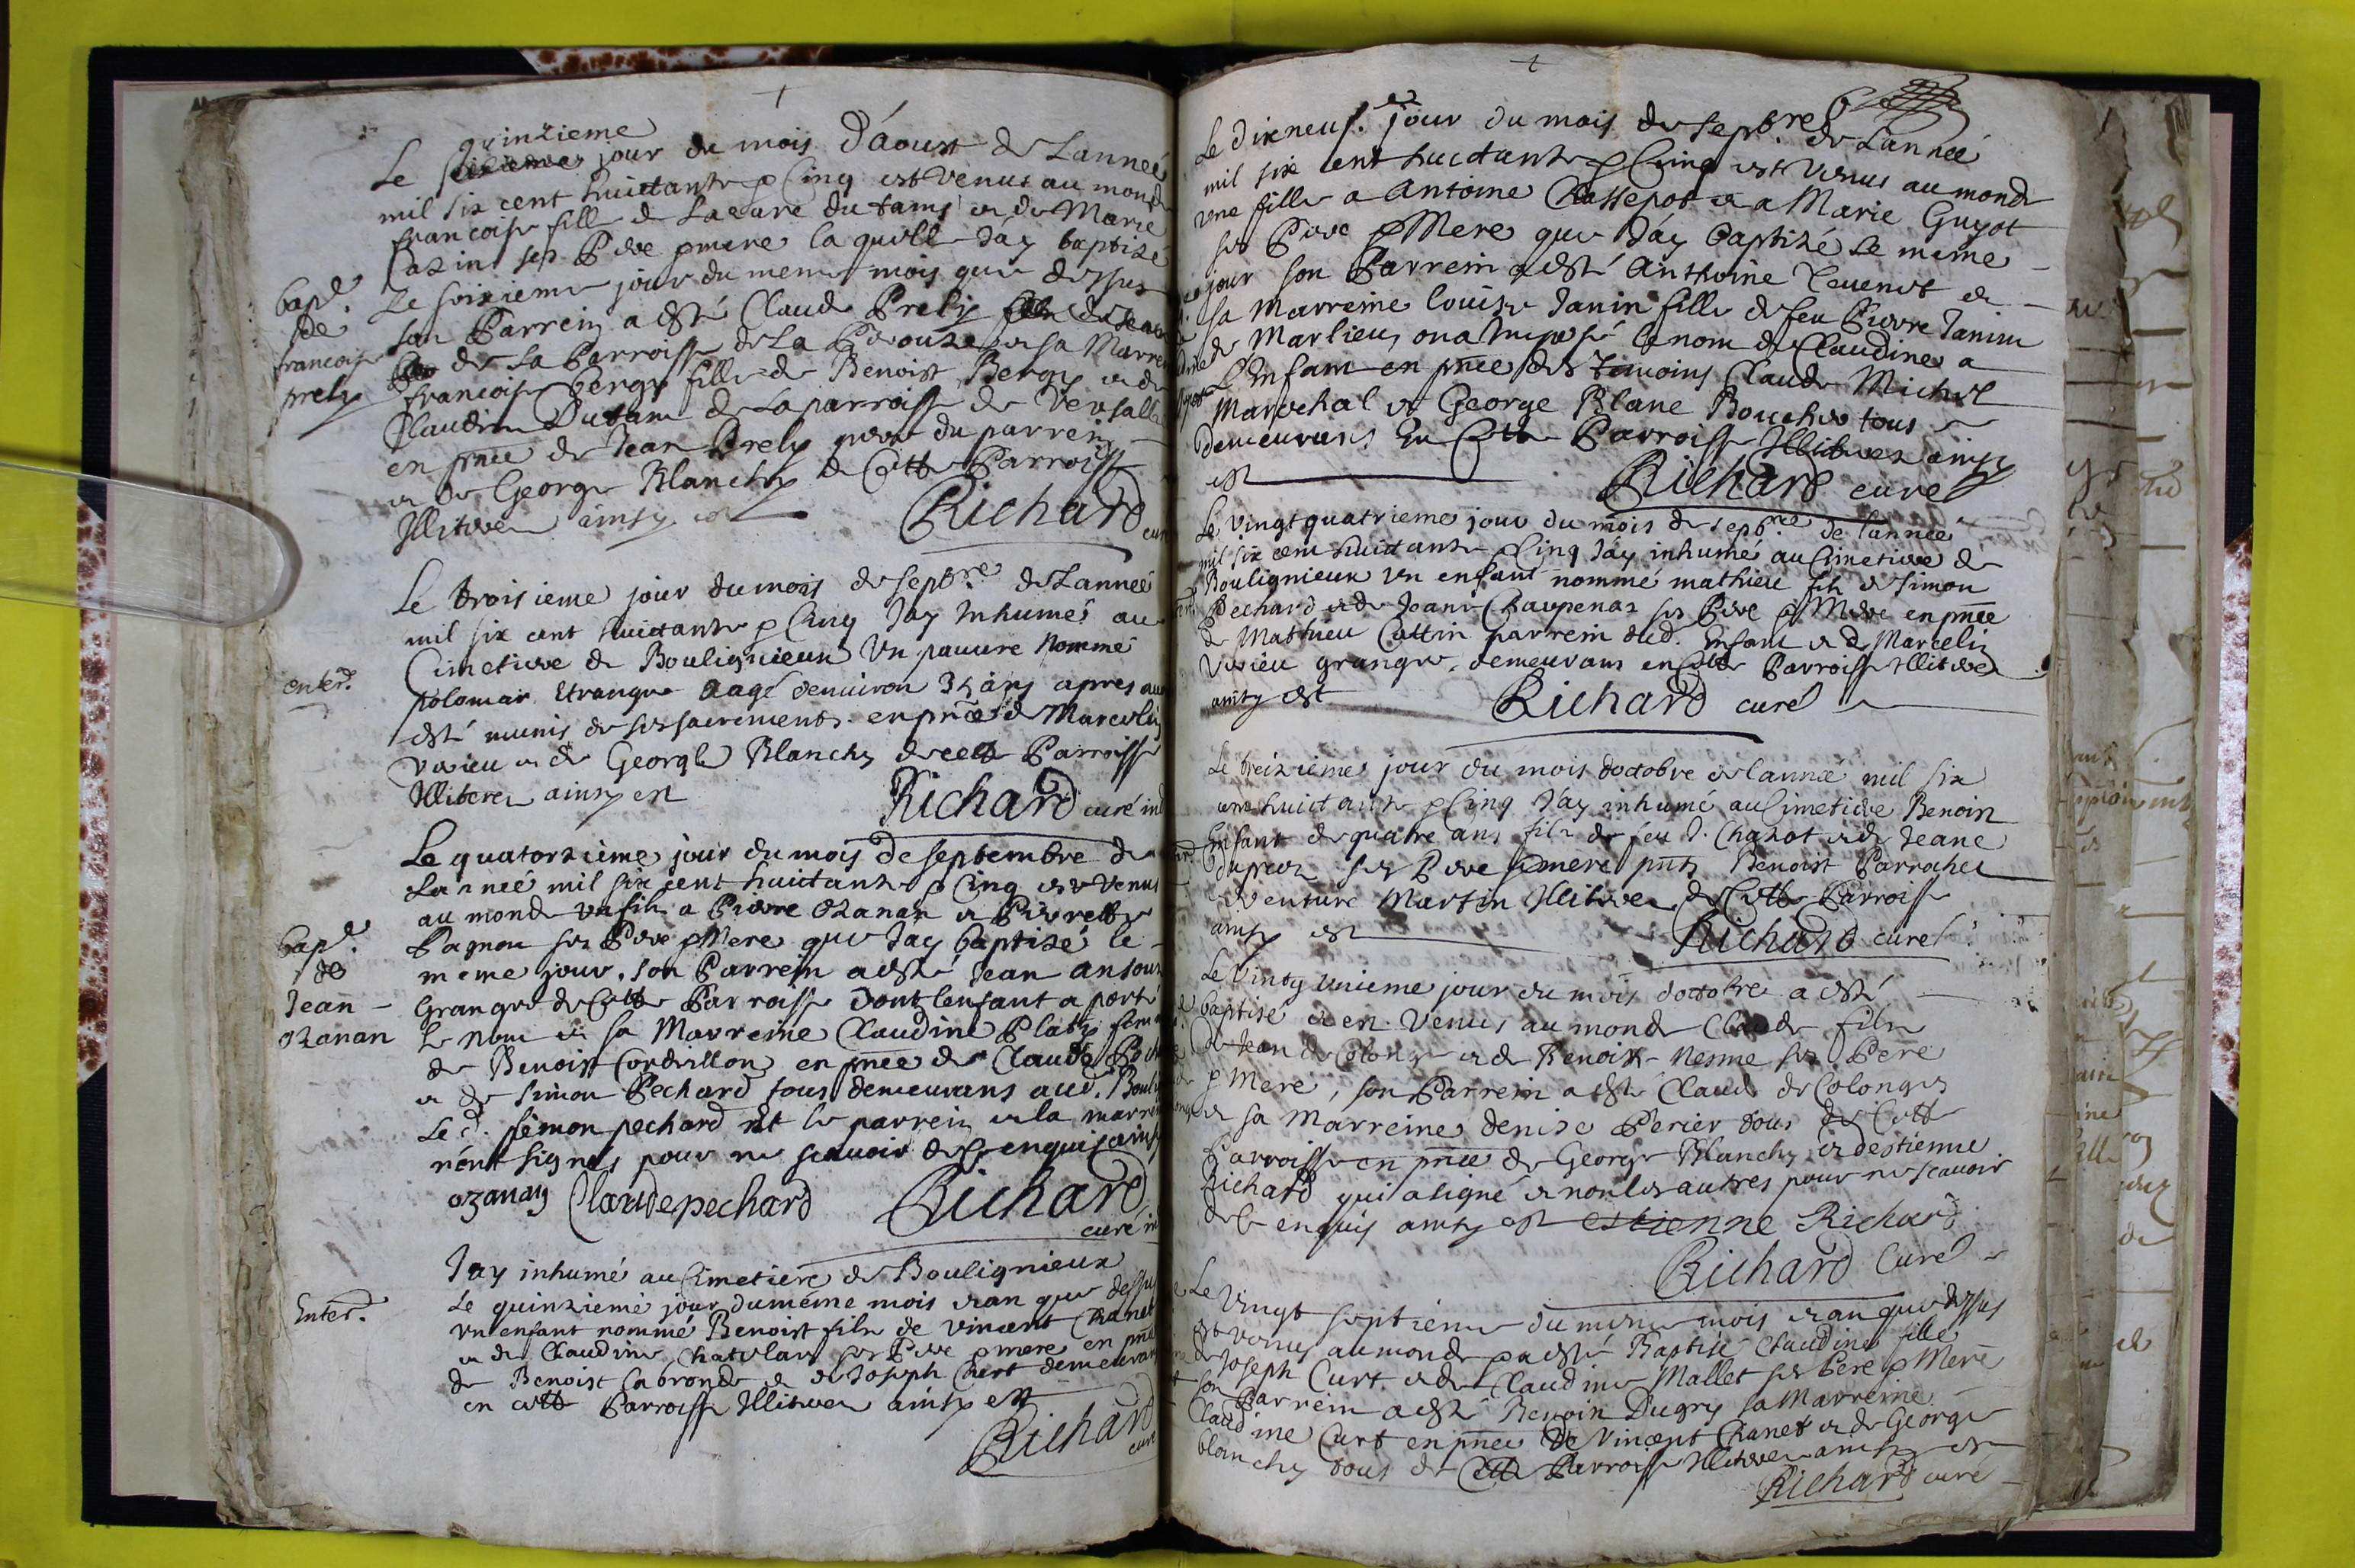 quinzieme
Le jour du mois D'áoust de Lanneé
mil six cent huictante & Cinq est venus au monde
francoise fille de du tams et de Marie
Cazin ses Pere & mere laquelle Jay baptisé
Le seixieme jour du meme mois que dessus
son Parrein a esté Claude Prely
de sa Parroisse de La Perouze et sa Marre
francoise bergy fille de Benoist Bergy et de
Claudine Dutam de la parroisse de Versalle
en pnce de Jean Prely pere du parrein
et de George Blanchy de Cette Parroisse
Illiterez ainsy est
Richard curé
bapt.
de
francoise
prely
Le troisieme jour du mois de septbre de Lanneé
mil six cent huictante & Cinq Jay Inhumés au
Cimetiere de Boulignieux Un pauvre Nommé
polomar Etranger aagé denuiron 35 ans apres auoir
esté munis de ses sacrements en pnce de Marcelin
Verieu et de George Blanchy de cette Parroisse
Illiterez ainsy est
Richard curé
enterr.
Le quatorzieme jour du mois de septembre de
Lanneé mil six cent huictante & Cinq est Venus
au monde un fils a Pierre Ozanan et Pierrette
Pagnon ses Pere & Mere que Jay baptizé le
meme jour. son Parrein a esté Jean ansoux
Granger de Cette Parroisse dont lenfant a porté
le nom et sa Marreine Claudine Platy femme
de Benoist Cordeillon en pnce de Claude
et de simon Pechard tous demeurans aud.
Le d. simon pechard et le parrein et la marreine
n'ont signés pour ne scauoir de ce enquis ainsy
ozanan Claude pechard Richard
curé
bapt.
de
Jean
Ozanan
Jay inhumé au Cimetiere de Boulignieux
Le quinzieme jour du méme mois et an que dessus
vn enfant nommé Benoist fils de vincent Chanet
et de Claudine Chatelard ses Pere & mere en pnce
de Benoist Cabronde et de Joseph Curt demeurans
en cette Parroisse Illiterez ainsy est
Richard
curé
Enterr.
Le dixneuf. jour du mois de septbre de Lanneé
mil six cent huictante & Cinq est venus au monde
vne fille a Antoine Chassepot et a Marie Guyot
ses Pere & Mere que Jáy baptizé le meme
jour son Parrein a esté Anthoine Teuenet et
sa Marreine louise Janin fille de feu Pierre Janin
de Marlieux on a Imposé le nom de Claudine a
L'Enfant en pnce des temoins Claude Michel
Marechal et George Blane Boucher tous
demeurans En Cette Parroisse Illiterez ainsy
est
Richard curé
Le vingtquatrieme jour du mois de septbre de lanneé
mil six cent huictante & Cinq Jáy inhumé au Cimetiere de
Boulignieux vn enfant nommé mathieu fils de simon
Pechard et de Jeane Chaupenas ses Pere & Mere en pnce
de Mathieu Cattin parrein dud. Enfant et de Marcelin
Verieu granger, demeurans en Cette Parroisse Illiterez
ainsy est
Richard curé
Le treizieme jour du mois doctobre de lanneé mil six
cent huictante & Cinq J'ay inhumé au Cimetiere Benoin
Enfant de quatre ans fils de feu J. Chazot et de Jeane
duperoz ses Pere & mere pnts Benoist Parrachet
Bonuenture Martin Illiterez de Cette Parroisse
ainsy est
Richard curé
Le vingt unieme jour du mois doctobre a esté
baptisé et est Venus au monde Claude fils
de Jean de Colonge et de Benoiste Nesme ses Pere
& Mere, son Parrein a esté Claude de Colonges
et sa Marreine denise Perier tous de Cette
Parroisse en pnce de George Blanchy et destienne
Richard qui a signé et non les autres pour ne scauoir
de ce enquis ainsy est estienne Richard
Richard Curé
Le Vingt septieme du meme mois et an que dessus
est venus au monde & a esté Baptisé Claudine fille
de Joseph Curt et de Claudine Mallet ses Pere & Mere
son Parrein a esté Benoin Dugry sa Marreine
Claudine Curt en pnce De Vincent Chanet et de George
blanchy tous de Cette Parroisse Illiterez ainsy est
Richard curé